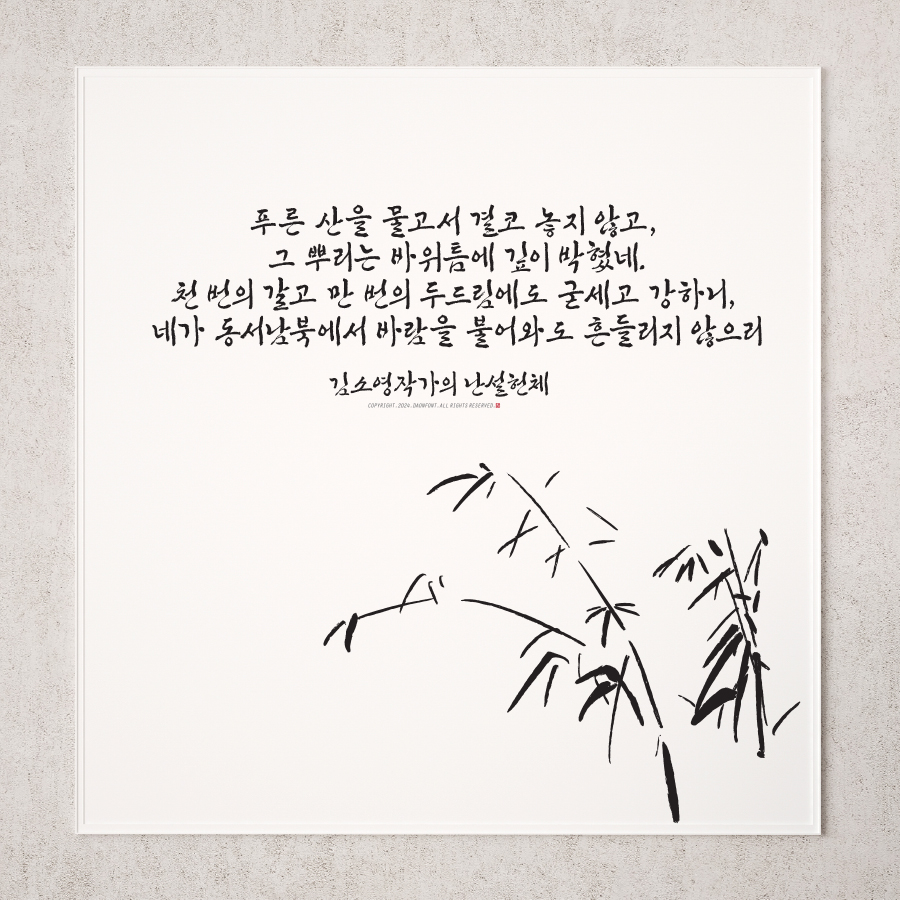 푸른 산을 물고서 결코 놓지 않고,
그 뿌리는 바위틈에 깊이 박혔네.
천 번의 갈고 만 번의 두드림에도 굳세고 강하니,
네가 동서남북에서 바람을 불어와도 흔들리지 않으리
김소영작가의 난설헌체
COPYRIGHT.2024.DAONFONT.ALL RIGHTS RESERVED.